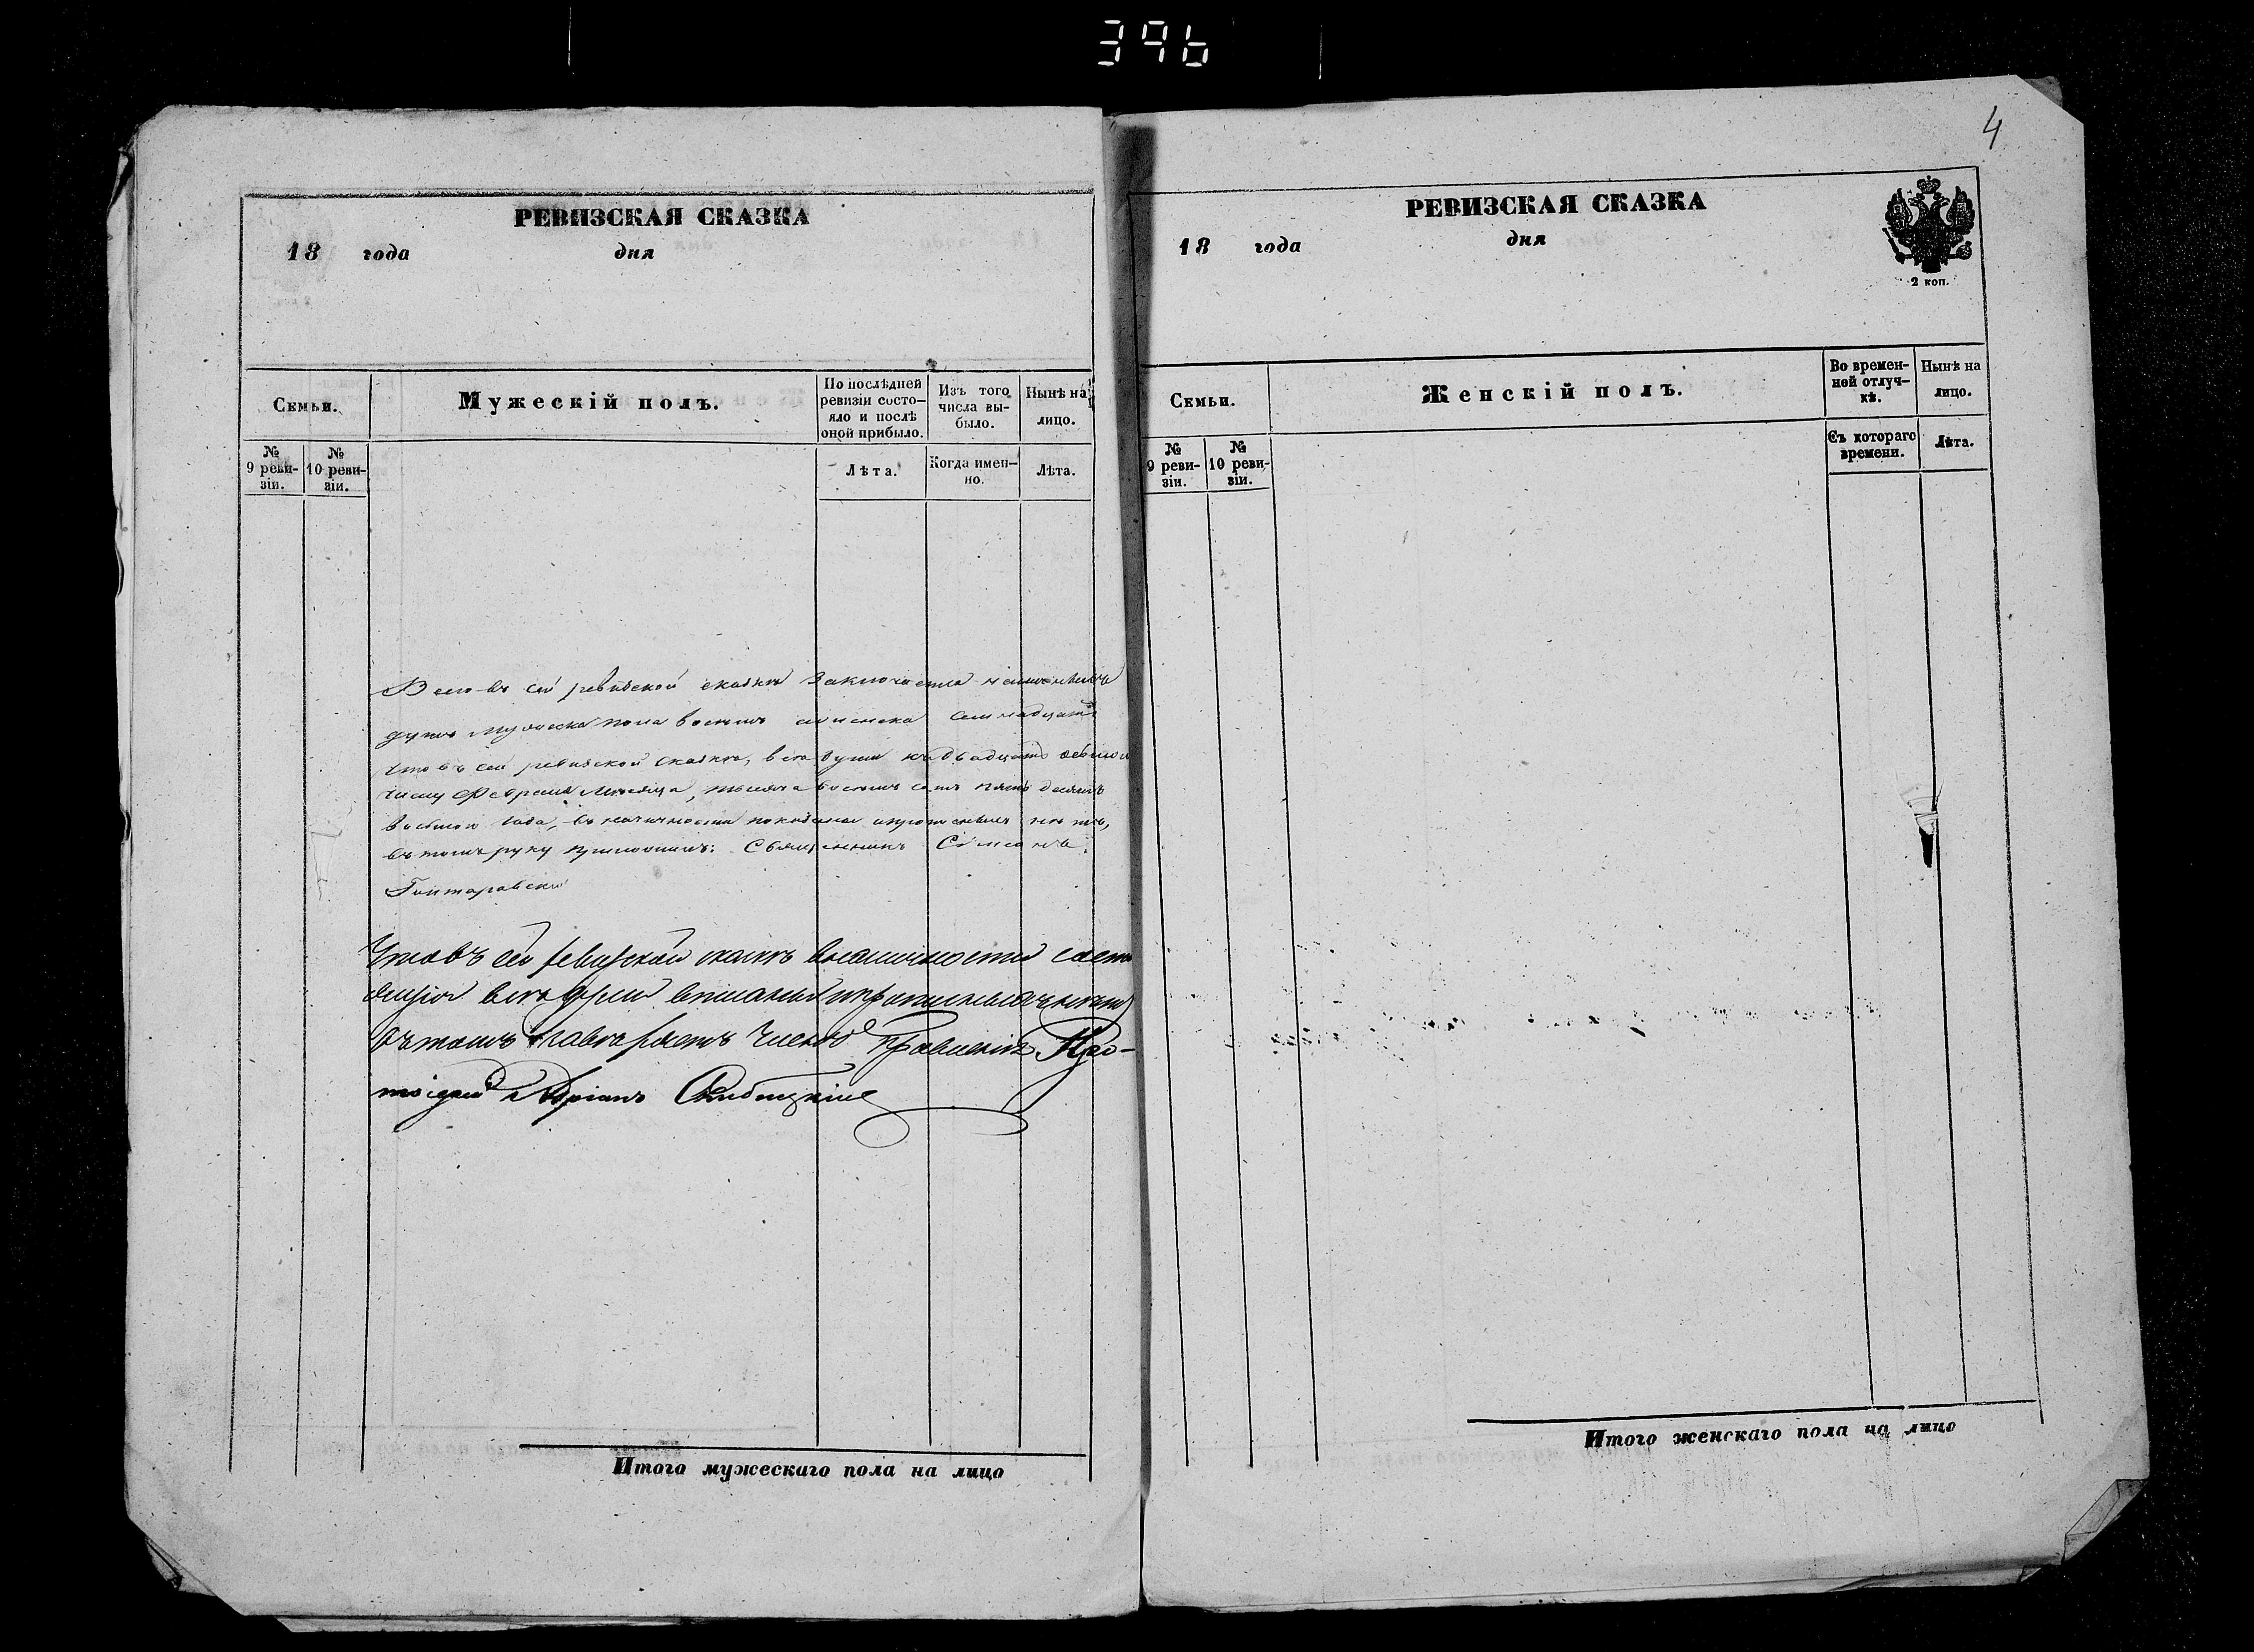 396
4
РЕВИЗСКАЯ СКАЗКА
18 года дня
Семьи.
Мужескій полъ.
По послѣдней ревизіи состо-
яло и послѣ оной прибыло.
Изъ того числа вы-
было.
Нынѣ на лицо.
№ 9 реви-
зіи.
№ 10 реви-
зіи.
Лѣта.
Когда имен-
но.
Лѣта.
Всего въ сей ревизской сказкѣ заключается наличныхъ
душъ мужеска пола восемь женска семнадцать
Что въ сей ревизской сказкѣ, всѣ души къ двадцать осьмом
числу Февраля Мѣсяца, тысяча восемь сотъ пять десятъ
восьмой года, въ наличности показаны и прописныхъ нѣтъ,
въ томъ руку приложилъ: Священникъ Симеонъ
Что въ сей ревизской сказкѣ въ наличности состо
ящія всѣ души вписаны и прописныхъ нѣтъ
въ томъ Членъ Правленія Про-
тоіерей Адріанъ
Итого мужескаго пола на лицо
РЕВИЗСКАЯ СКАЗКА
18 года дня
2 коп.
Семьи.
Женскій полъ.
Во времен-
ной отлуч-
кѣ.
Нынѣ на лицо.
№ 9 реви-
зіи.
№ 10 реви-
зіи.
Съ котораго времени.
Лѣта.
Итого женскаго пола на лицо